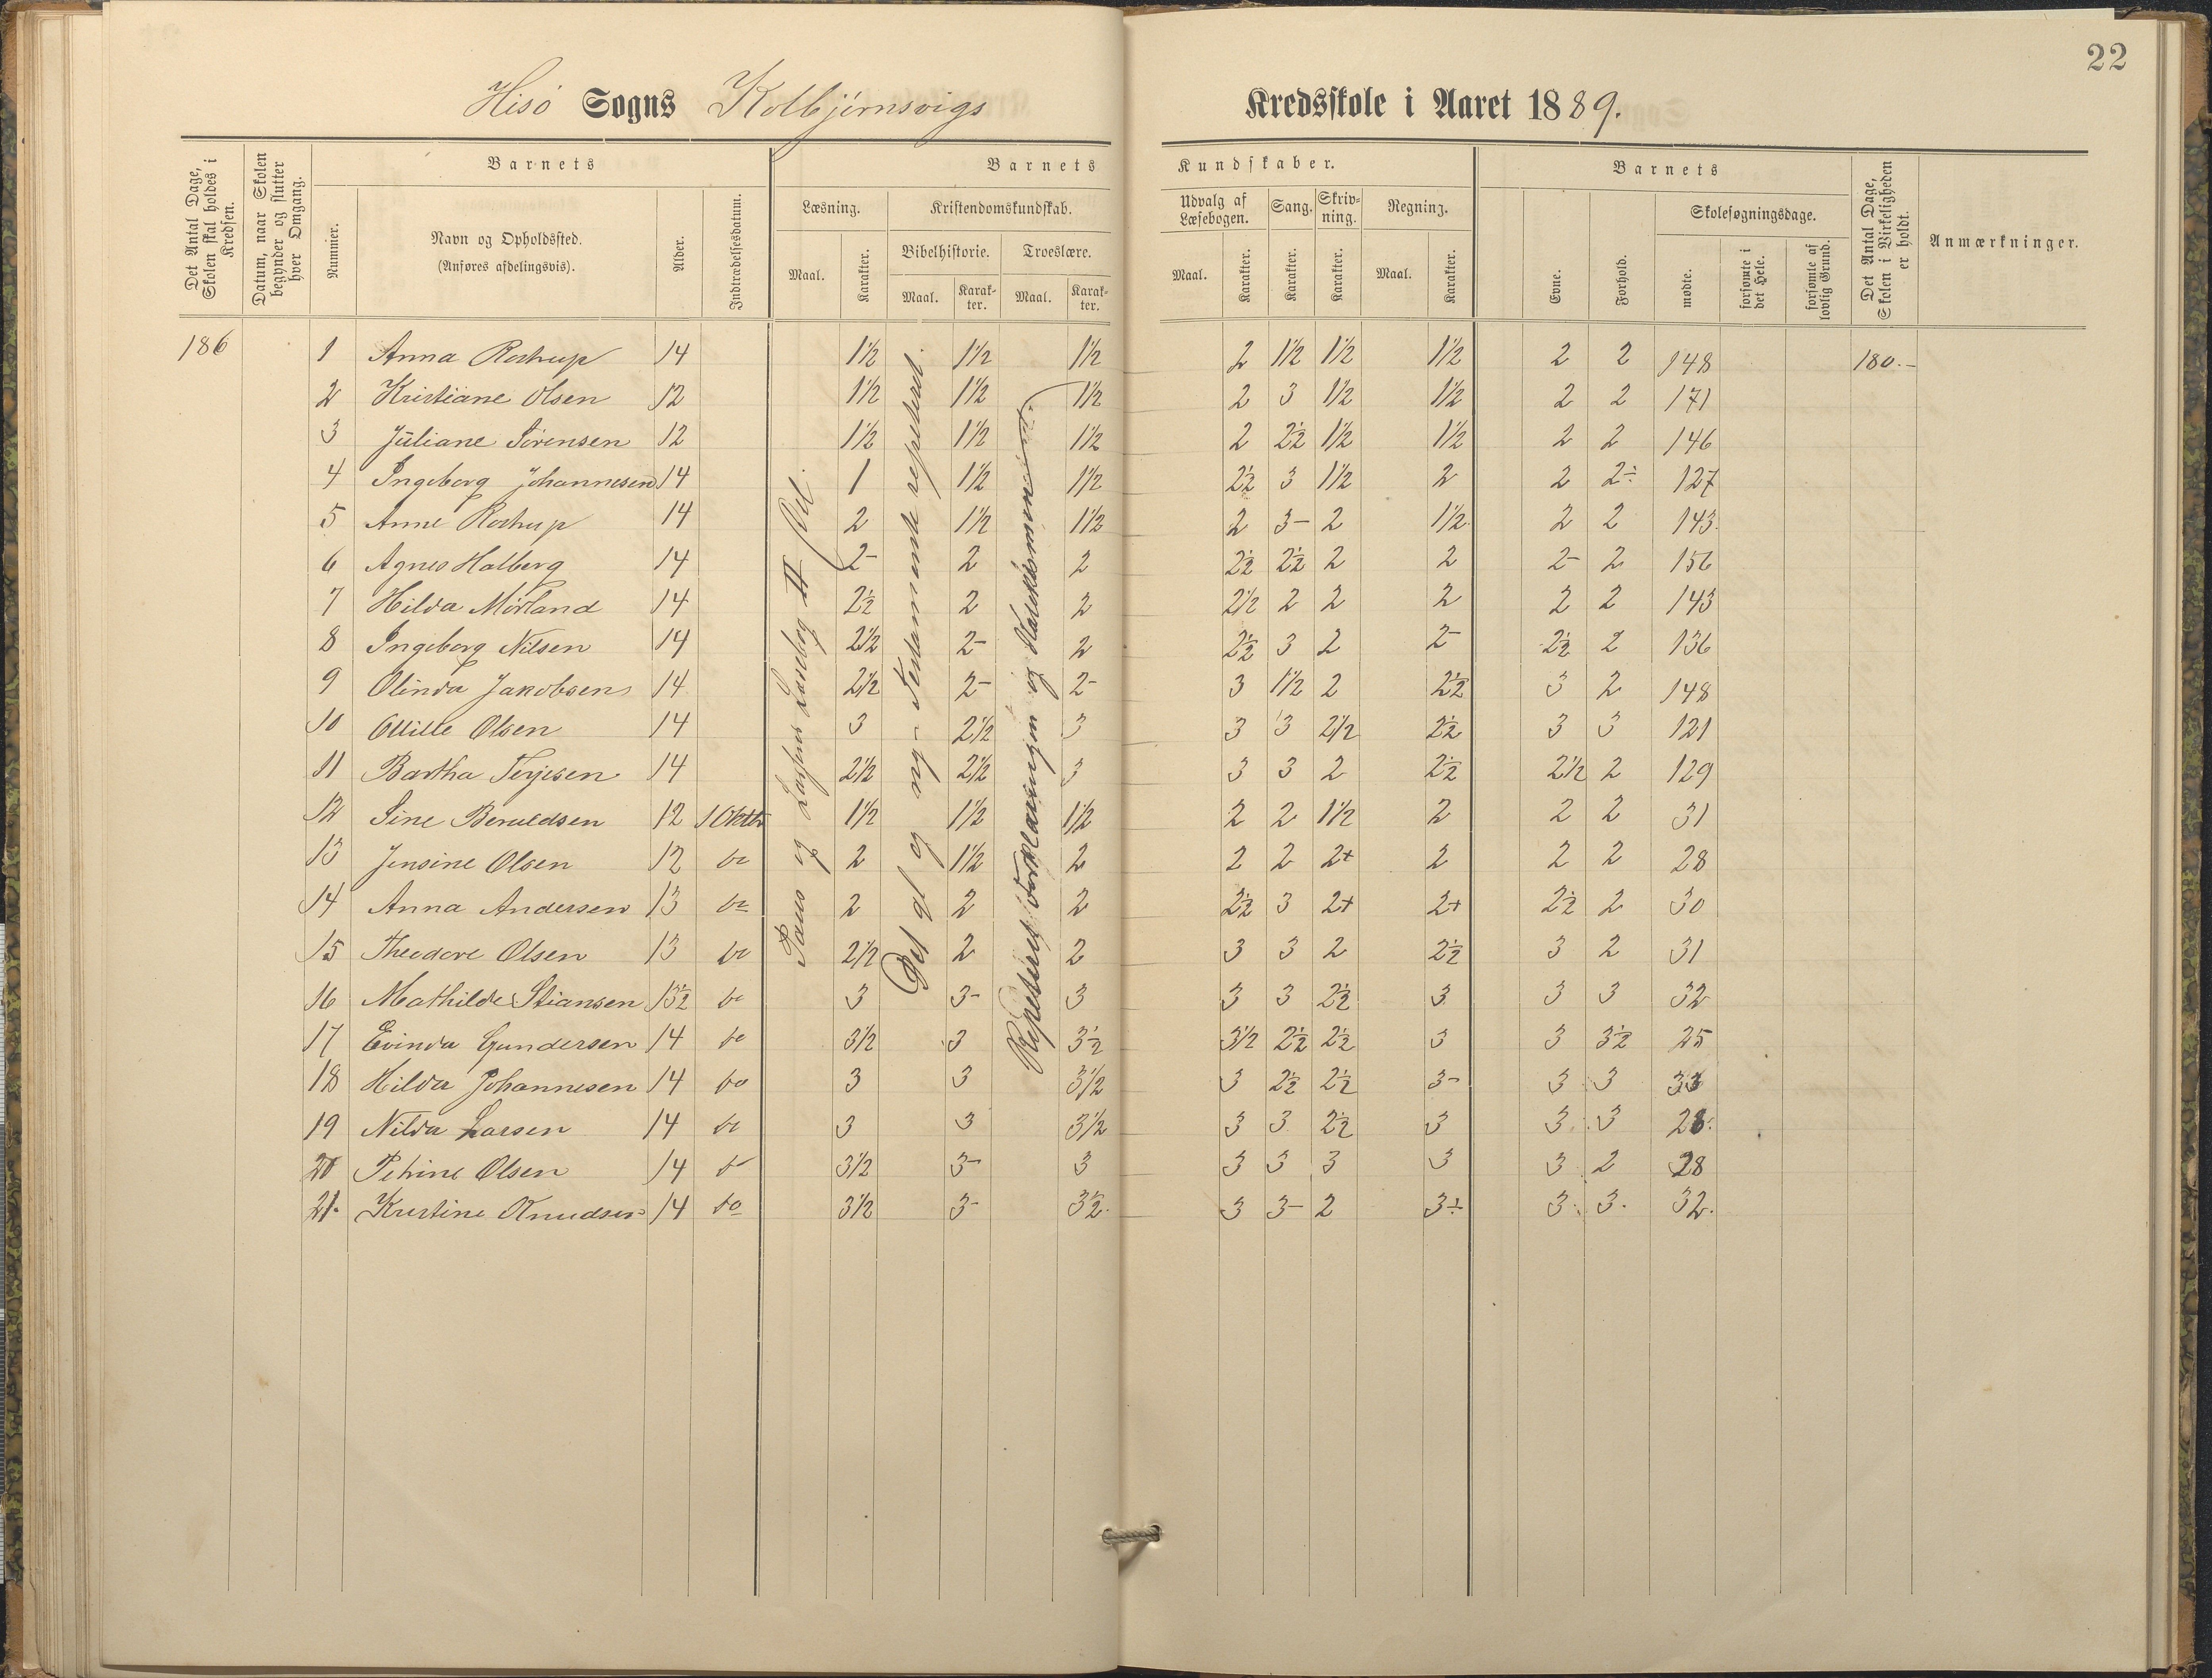 22
Hisö Sogns Kolbjörnsvigs Kredsskole i Aaret 1889.
Det Antal Dage, Skolen skal holdes i Kredsen.
Datum, naar Skolen begynder og slutter hver Omgang.
Barnets
Nummer.
Navn og Opholdssted.
(Anføres afdelingsvis).
Alder.
Indtrædelsesdatum.
Barnets Kundskaber.
Læsning.
Maal.
Karakter.
Kristendomskundskab.
Bibelhistorie.
Maal.
Karakter.
Troeslære.
Maal.
Karakter.
Udvalg af Læsebogen.
Maal.
Karakter.
Sang.
Karakter.
Skrivning.
Karakter.
Regning.
Maal.
Karakter.
Barnets
Evne.
Forhold.
Skolesøgningsdage.
mødte.
forsømte i det Hele.
forsømte af lovlig Grund.
Det Antal Dage, Skolen i Virkeligheden er holdt.
Anmærkninger.
186 1 Anna Rostrup 14 1½ 1½ 1½ 2 1½ 1½ 1½ 2 2 148 180.-
2 Kristiane Olsen 12 1½ 1½ 1½ 2 3 1½ 1½ 2 2 171
3 Juliane Sörensen 12 1½ 1½ 1½ 2 2½ 1½ 1½ 2 2 146
4 Ingeborg Johannesen 14 1 1½ 1½ 2½ 3 1½ 2 2 2÷ 127
5 Anne Rostrup 14 2 1½ 1½ 2 3- 2 1½ 2 2 143
6 Agnes Halberg 14 2- 2 2 2½ 2½ 2 2 2- 2 156
7 Hilda Mörland 14 2½ 2 2 2½ 2 2 2 2 2 143
8 Ingeborg Nilsen 14 2½ 2- 2 2½ 3 2 2- 2½ 2 136
9 Olinda Jakobsen 14 2½ 2- 2- 3 1½ 2 2½ 3 2 148
10 Otilie Olsen 14 3 2½ 3 3 3 2½ 2½ 3 3 121
11 Bartha Terjesen 14 2½ 2½ 3 3 3 2 2½ 2½ 2 129
12 Sine Beruldsen 12 1 Oktbr 1½ 1½ 1½ 2 2 1½ 2 2 2 31
13 Jensine Olsen 12 do 2 1½ 2 2 2 2+ 2 2 2 28
14 Anna Andersen 13 do 2 2 2 2½ 3 2+ 2+ 2½ 2 30
15 Theodore Olsen 13 do 2½ 2 2 3 3 2 2½ 3 2 31
16 Mathilde Stiansen 13½ do 3 3- 3 3 3 2½ 3 3 3 32
17 Evinda Gundersen 14 do 3½ 3 3½ 3½ 2½ 2½ 3 3 3½ 25
18 Hilda Johannesen 14 do 3 3 3½ 3 2½ 2½ 3- 3 3 33
19 Nilda Larsen 14 do 3 3 3½ 3 3 2½ 3 3 3 28.
20 Petrine Olsen 14 do 3½ 3- 3 3 3 3 3 3 2 28
21. Kristine Knudsen 14 do 3½ 3- 3½ 3 3- 2 3÷ 3 3. 32.
Paus og Lassens Læsebog II Del.
Det gl og nye Testamente repeteret.
Repeteret Forklaringen og Katekismen